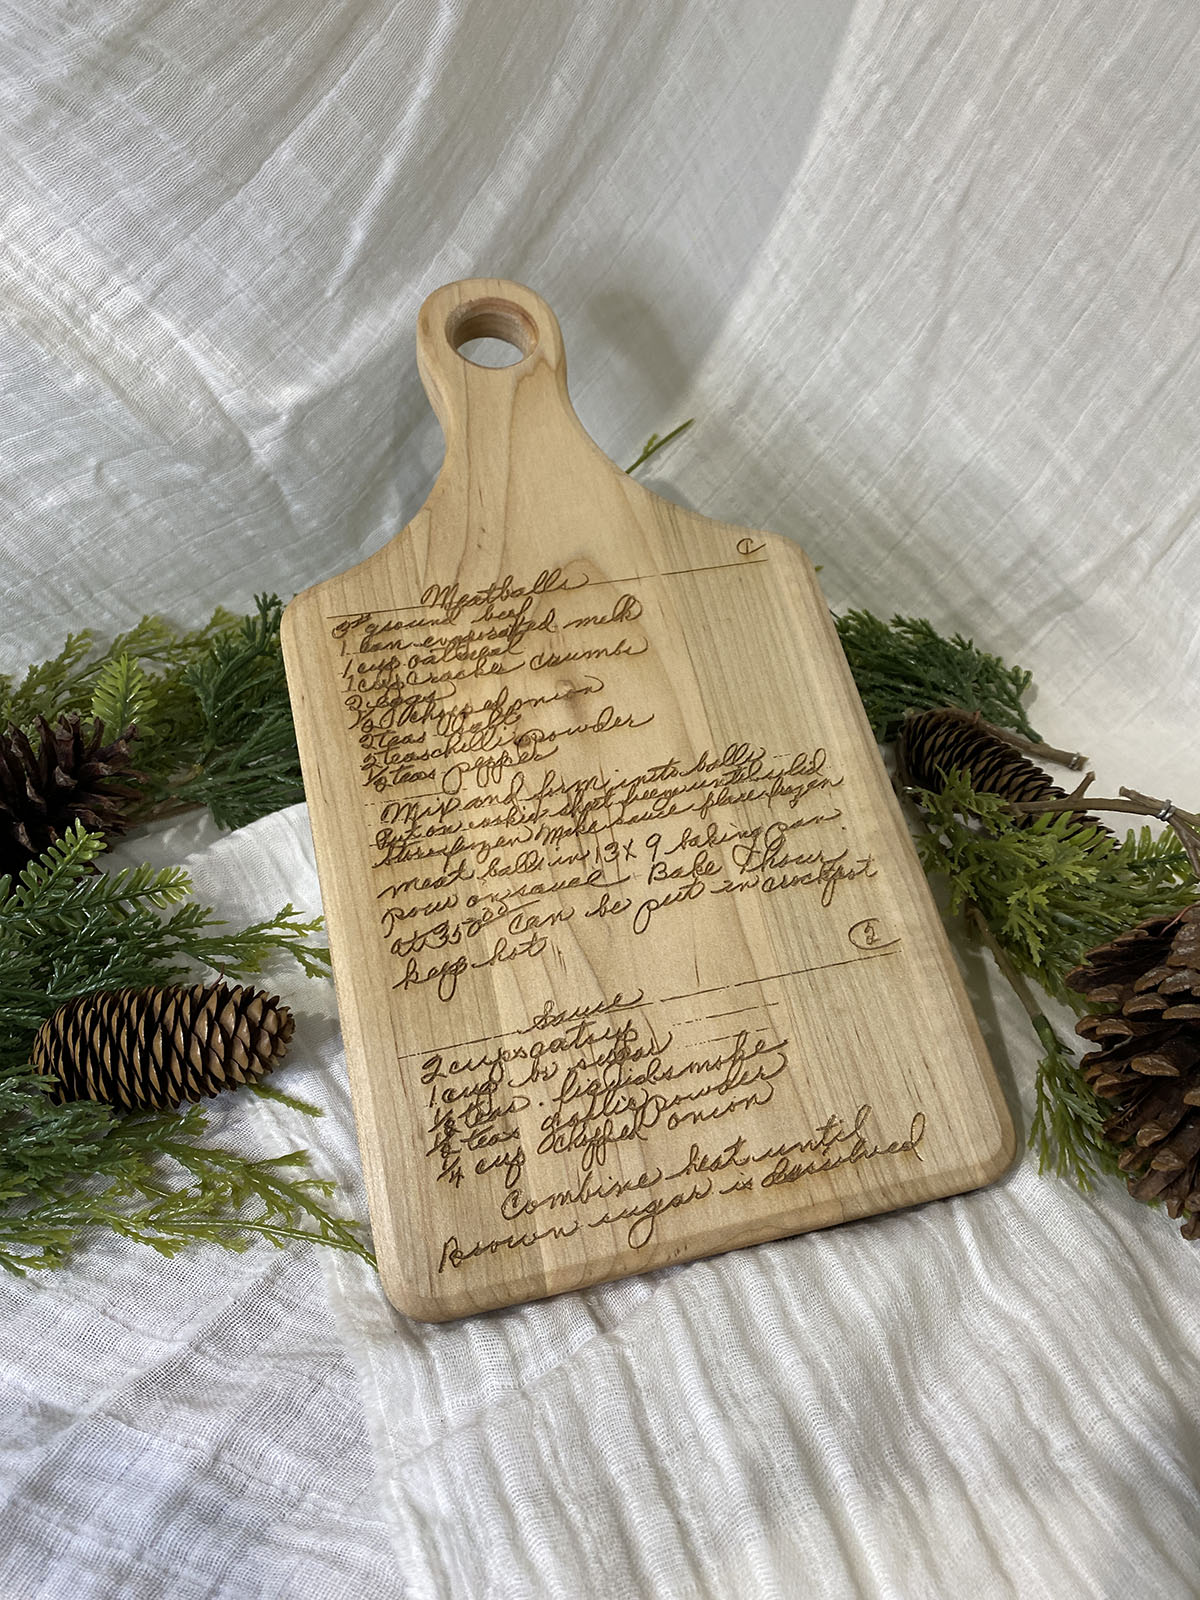 ①
Meatballs
3# ground beef
1 can evaporated milk
1 cup oatmeal
1 cup cracker crumbs
2 eggs
1/2 C chopped onion
2 teas salt
2 teas chilli powder
1/2 teas pepper
Mix and form into balls
Put on cookie sheet freeze until solid
Store frozen Make sauce place frozen
meat balls in 13 x 9 baking pan
pour on sauce Bake 1 hour
at 350° Can be put in crockpot
keep hot
②
Sauce
2 cups catsup
1 cup br sugar
1/2 teas. liquid smoke
1/2 teas garlic powder
1/4 cup chopped onion
Combine heat until
Brown sugar is dissolved